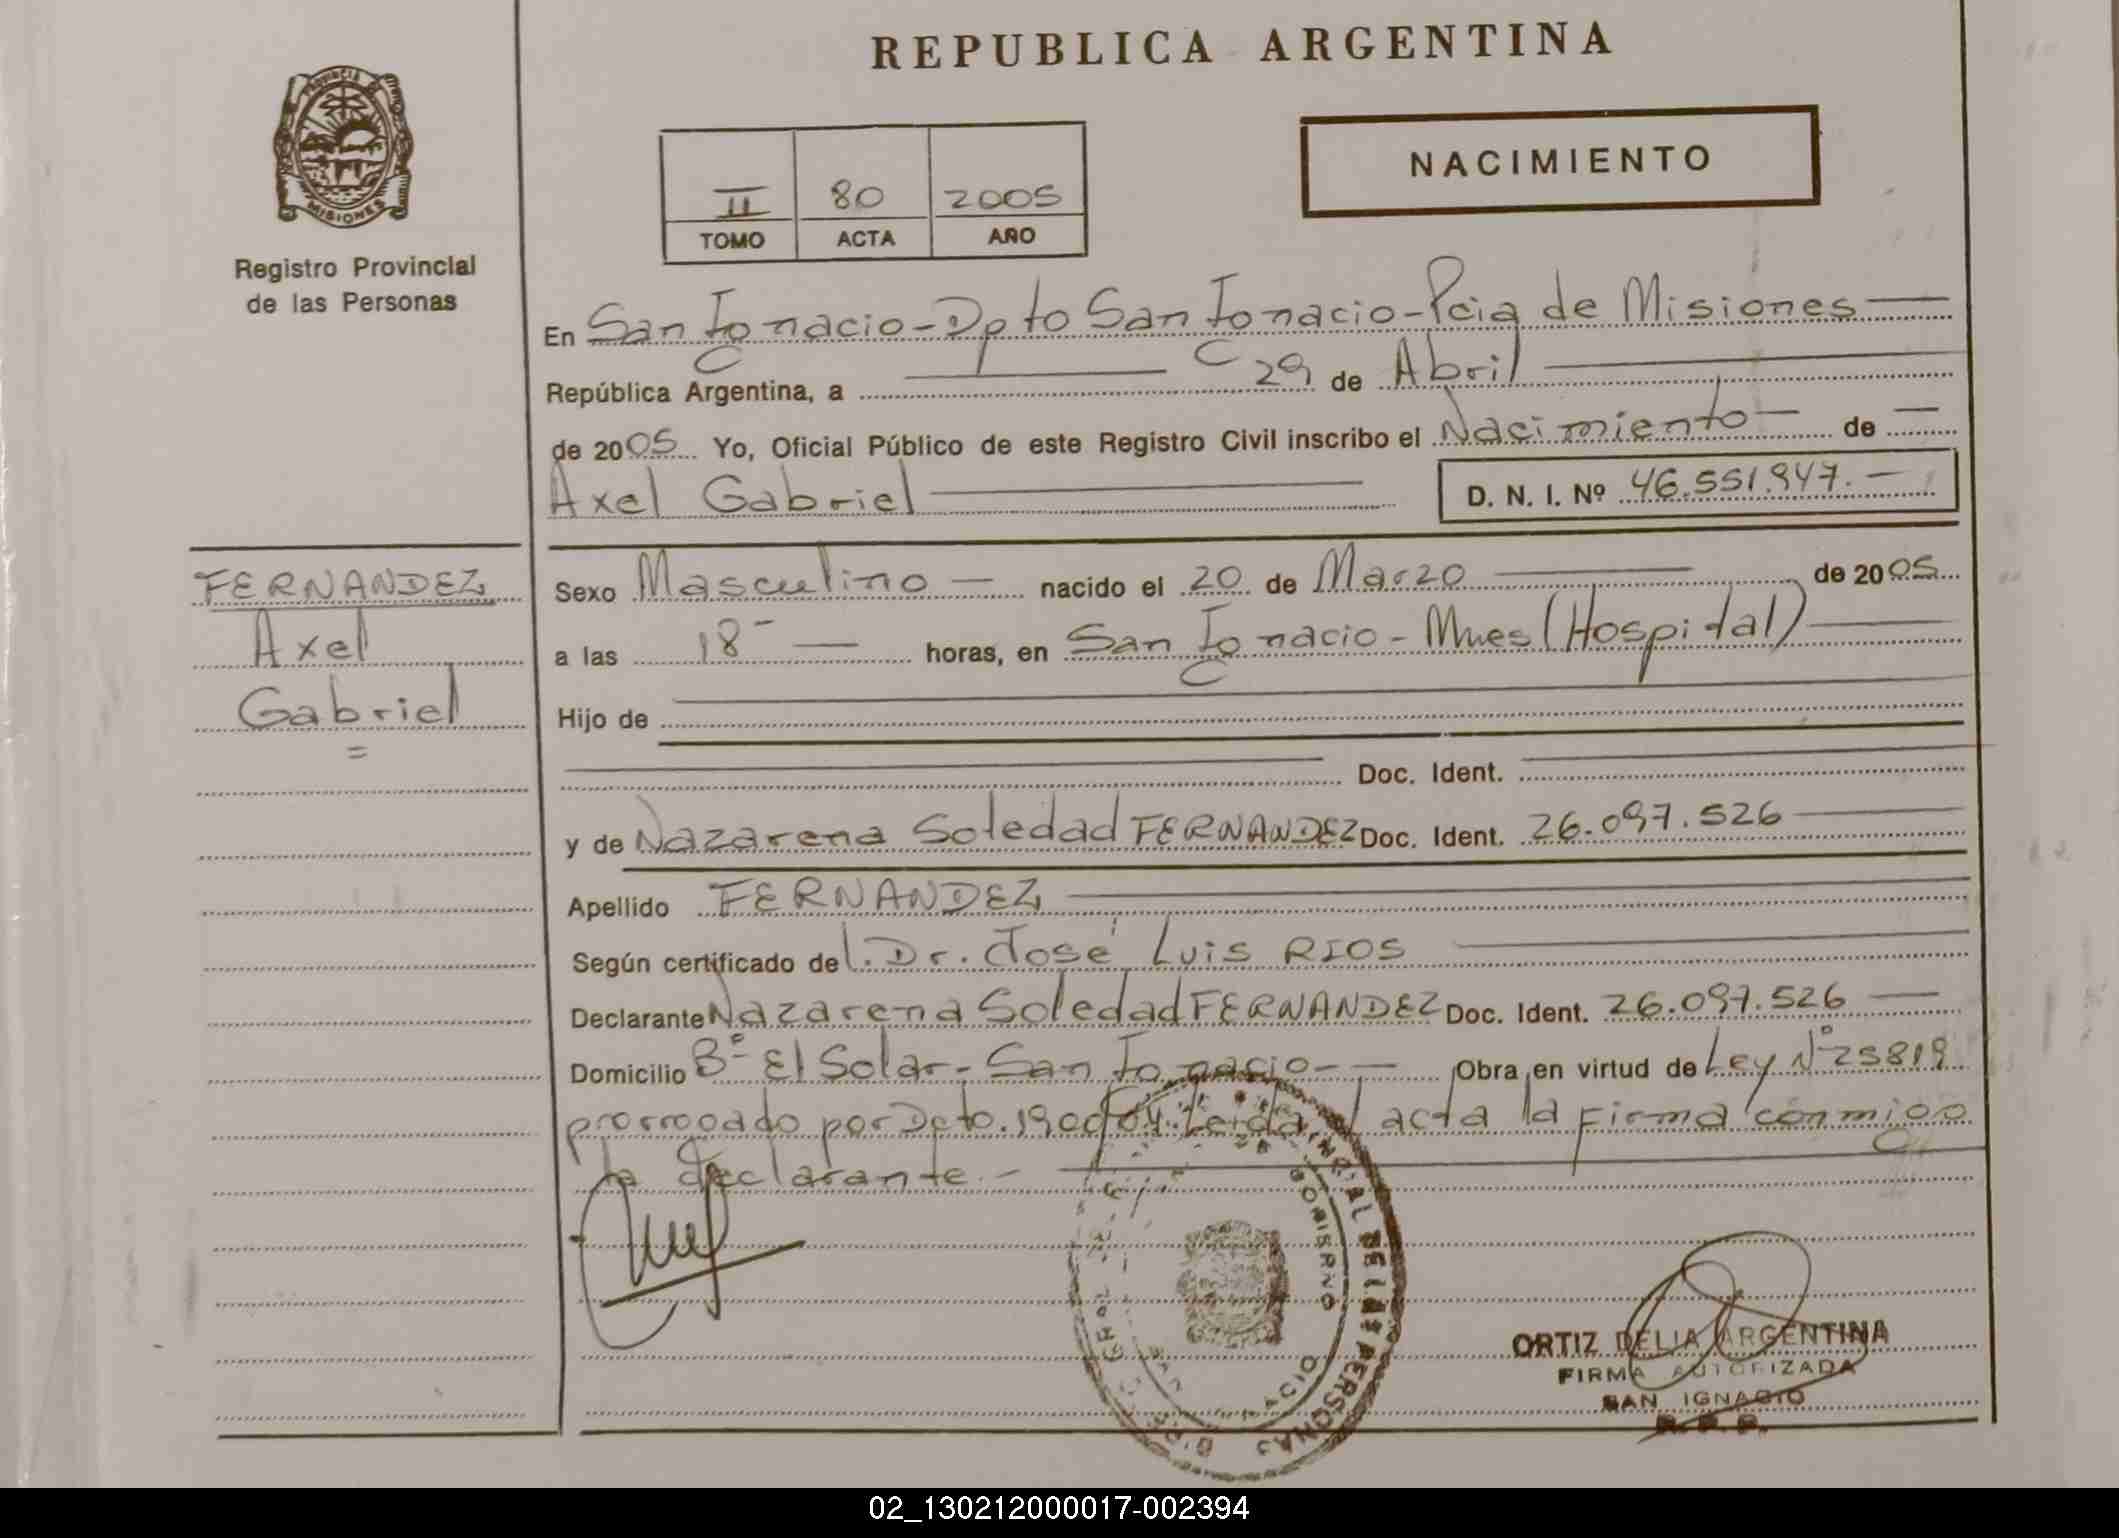 REPUBLICA ARGENTINA
PROVINCIA
MISIONES
Registro Provincial
de las Personas
NACIMIENTO
II 80 2005
TOMO ACTA AÑO
En San Ignacio-Dpto San Ignacio-Pcia de Misiones
República Argentina, a 29 de Abril
de 2005 Yo, Oficial Público de este Registro Civil inscribo el Nacimiento de
Axel Gabriel D. N. I. Nº 46.551.947.
FERNANDEZ
Axel
Gabriel
Sexo Masculino nacido el 20 de Marzo de 2005
a las 18 horas, en San Ignacio - Mnes (Hospital)
Hijo de
Doc. Ident.
y de Nazarena Soledad FERNANDEZ Doc. Ident. 26.097.526
Apellido FERNANDEZ
Según certificado del Dr. José Luis RIOS
Declarante Nazarena Soledad FERNANDEZ Doc. Ident. 26.097.526
Domicilio Bº El Solar - San Ignacio Obra en virtud de Ley Nº 25819
prorrogado por Dcto. 190 04. Leida acta la firma conmigo
la declarante.-
GOBIERNO
DE LAS PERSONAS
ORTIZ DELIA ARGENTINA
FIRMA AUTORIZADA
SAN IGNACIO
R. P. P.
02_130212000017-002394